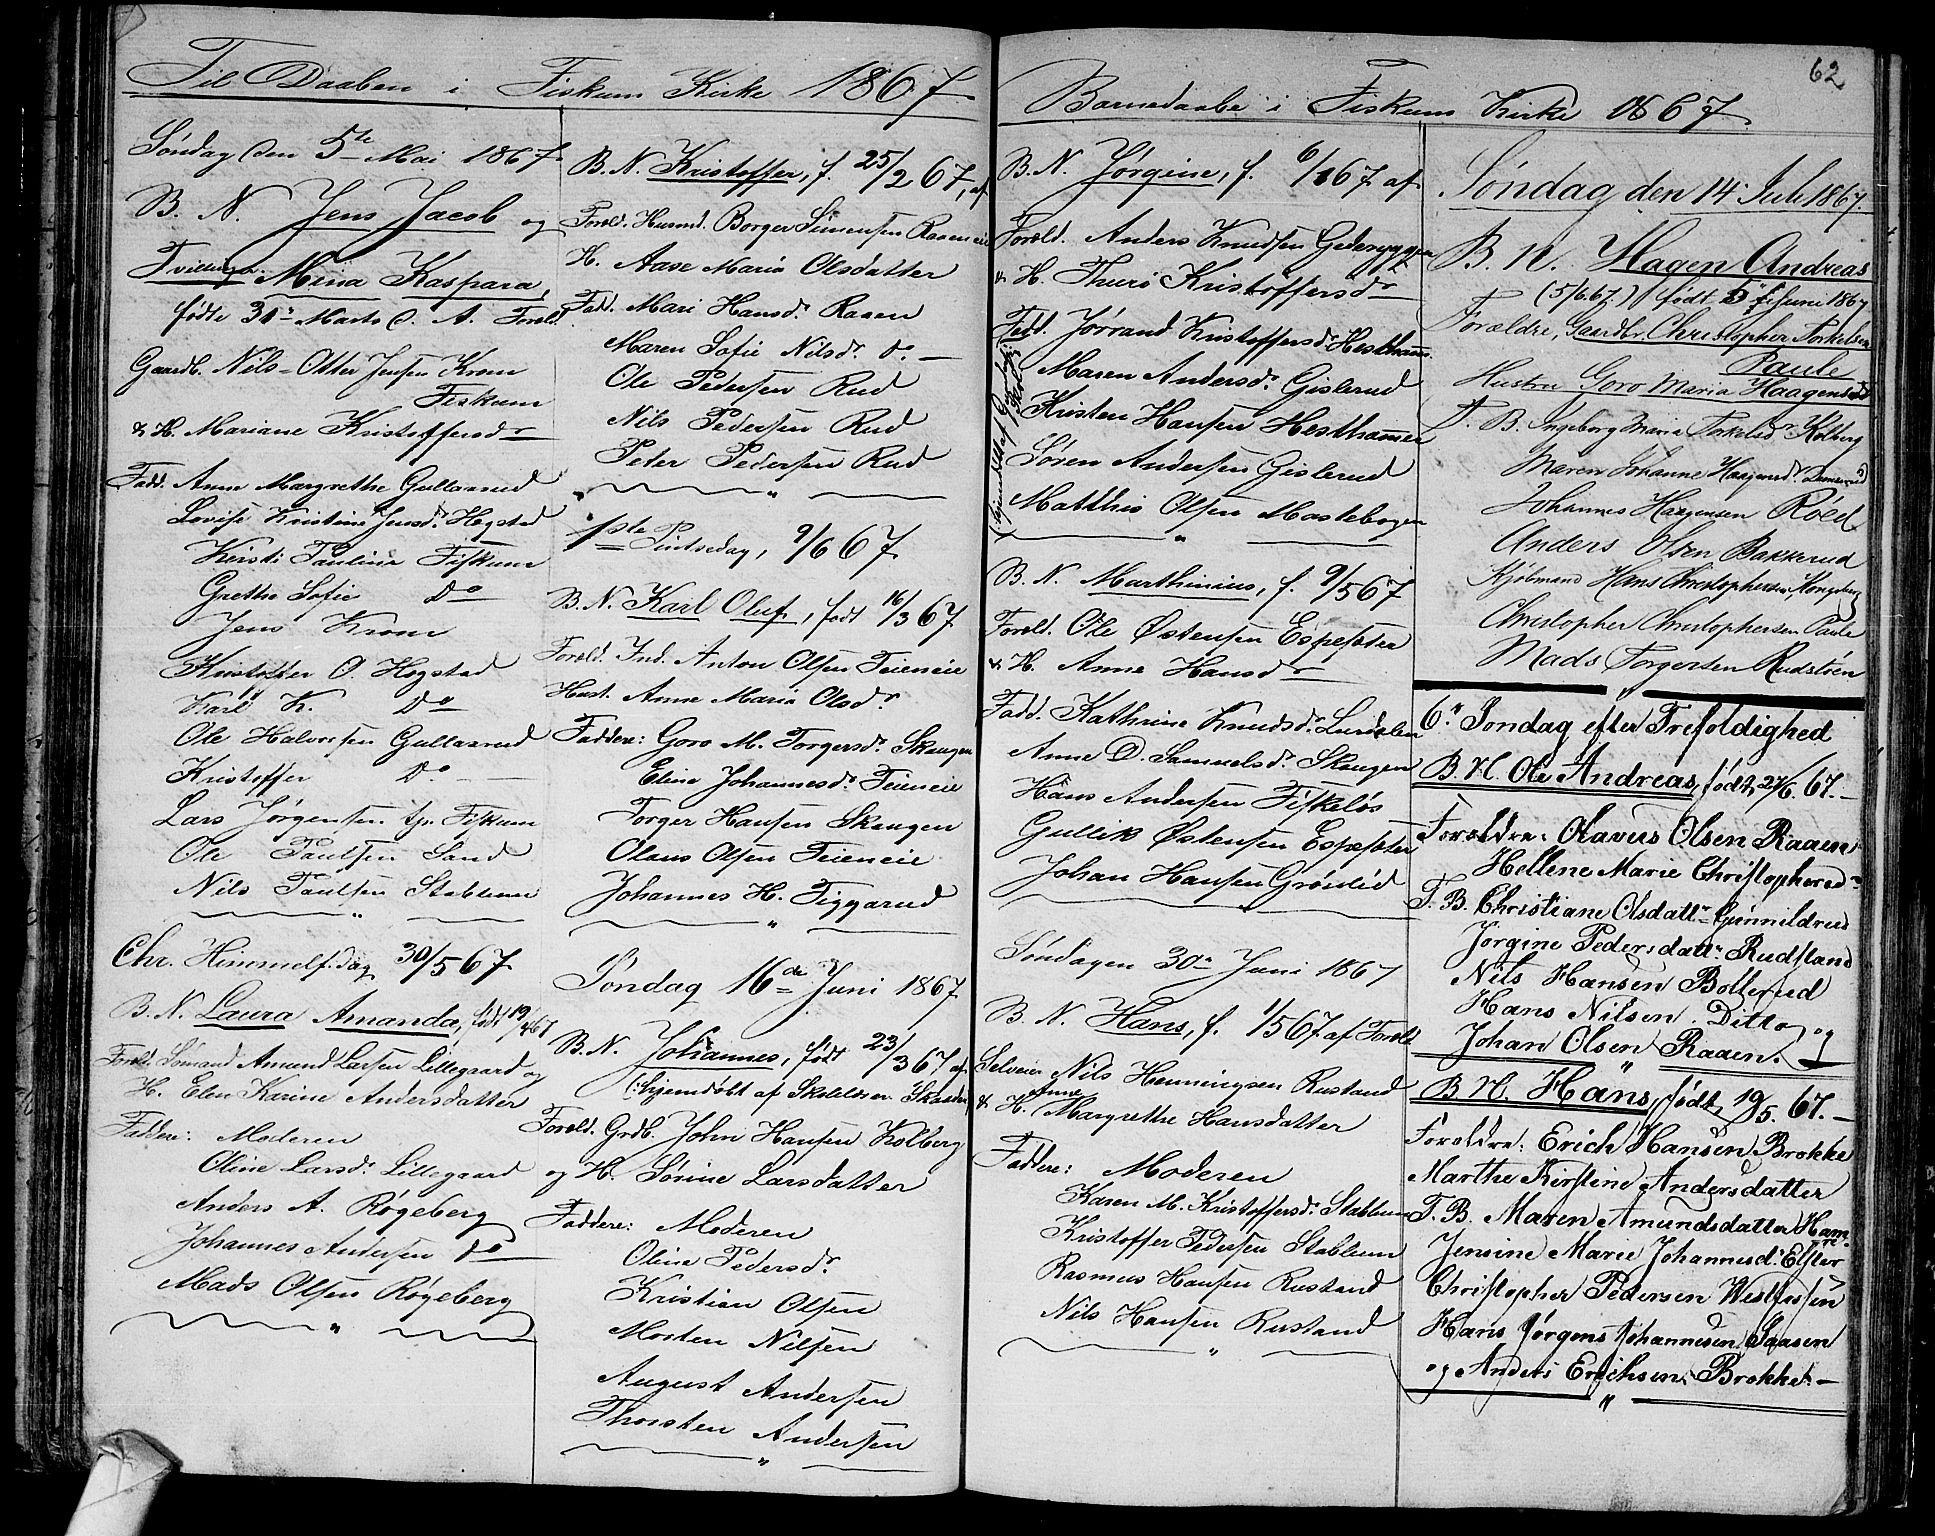 Til Daaben i Fiskum Kirke 1867.
Søndag den 5te Mai 1867.
B. N. Jens Jacob og
Tvillinger Mina Kaspara,
fødte 31n Marts d. A. Foræld.
Gaardb. Nils-Otter Jensen Krom
Fiskum
& H. Mariane Kristoffersdr
Fadd. Anne Margrethe Gullaarud
Lovise Kristine Jensdr Hegstad
Kirsti Pauline Fiskum
Grethe Sofie Do
Jens Krom
Kristoffer O. Hegstad
Karl K. Do
Ole Halvorsen Gullaarud
Kristoffer Do
Lars Jørgensen tj. Fiskum
Ole Paulsen Sand
Nils Paulsen Stablum
Chr. Himmelf.dag 30/5 67
B. N. Laura Amanda, født 19/4 67
Foræld. Sømand Amund Larsen Lillegaard og
H. Elen Karine Andersdatter
Faddere: Moderen
Oline Larsdr Lillegaard
Anders A. Røgeberg
Johannes Andersen do
Mads Olsen Røgeberg
B. N. Kristoffer, f. 25/2 67, af
Foræld. Husmd. Borger Simensen Raaeneie
H. Aase Maria Olsdatter
Fadd. Mari Hansdr Raaen
Maren Sofie Nilsdr Do
Ole Pedersen Rud
Nils Pedersen Rud
Peter Pedersen Rud
1ste Pintsedag, 9/6 67
B. N. Karl Oluf, født 16/3 67
Foræld. Ind. Anton Olsen Teieneie
Hust. Anne Maria Olsdr
Faddere: Goro M. Torgersdr Skaugen
Eline Johannesdr Teieneie
Torger Hansen Skaugen
Olaus Olsen Teieneie
Johannes H. Tiggarud
Søndag 16de Juni 1867
B. N. Johannes, født 23/3 67 af
(:hjemdøbt af Skolelærer
Foræld. Grdb. John Hansen Kolberg
og H. Sørine Larsdatter
Faddere: Moderen
Oline Pedersdr
Kristian Olsen
Morten Nilsen
August Andersen
Thorsten Andersen
62
Barnedaabe i Fiskum Kirke 1867.
B. N. Jørgine, f. 6/1 67 af
Foræld. Anders Knudsen Gederyggen
& H. Thuri Kristoffersdr
Fadd. Jørrand Kristoffersdr Hesthamm.
Maren Andersdr Gislerud
Kristen Hansen Hesthammer
Søren Andersen Gislerud
Matthis Olsen Mastebogen
B. N. Marthinius, f. 9/5 67
Foræld. Ole Østensen Espeseter
& H. Anne Hansdr
Fadd. Kathrine Knudsdr Lurdalen
Anne D. Samuelsdr Skaugen
Hans Andersen Fiskeløs
Gullik Østensen Espeseter
Johan Hansen Grøslid
Søndagen 30n Juni 1867
B. N. Hans, f. 1/5 67 af Foræld
Selveier Nils Henningsen Rustand
& H. Anne Margrethe Hansdatter
Faddere: Moderen
Karen M. Kristoffersdr Stablum
Kristoffer Pedersen Stablum
Rasmus Hansen Rustand
Nils Hansen Rustand
Søndag den 14' Juli 1867.
B. N. Hagen Andreas
(5/6.67.) født 5te Juni 1867
Forældre, Gaardbr. Christopher Torkelsen
Paule
Hustru Goro Maria Haagensd
F. B. Ingeborg Maria Torkelsdr Kolberg
Maren Johanne Haagensdr
Johannes Haagensen Røed
Anders Olsen Bakkerud
Kjøbmand Hans Christophersen, Kongsberg
Christopher Christophersen Paule
Mads Torgersen Rudstøen
6te Søndag efter Trefoldighed
B. N. Ole Andreas, født 27/6. 67.
Forældre: Olavus Olsen Raaen
Hellene Marie Christophersdr
F. B. Christiane Olsdattr Gunnildrud
Jørgine Pedersdattr Rudstand
Nils Hansen Bollerud
Hans Nilsen Ditto og
Johan Olsen Raaen.
B. N. Hans, født 19/5. 67.
Forældre: Erich Hansen Brokke
Marthe Kirstine Andersdatter
F. B. Maren Amundsdatter Ham.
Jensine Marie Johannesdr Elster
Christopher Pedersen Westfossen
Hans Jørgens Johannesen Saasen
og Anders Erichsen Brokke.